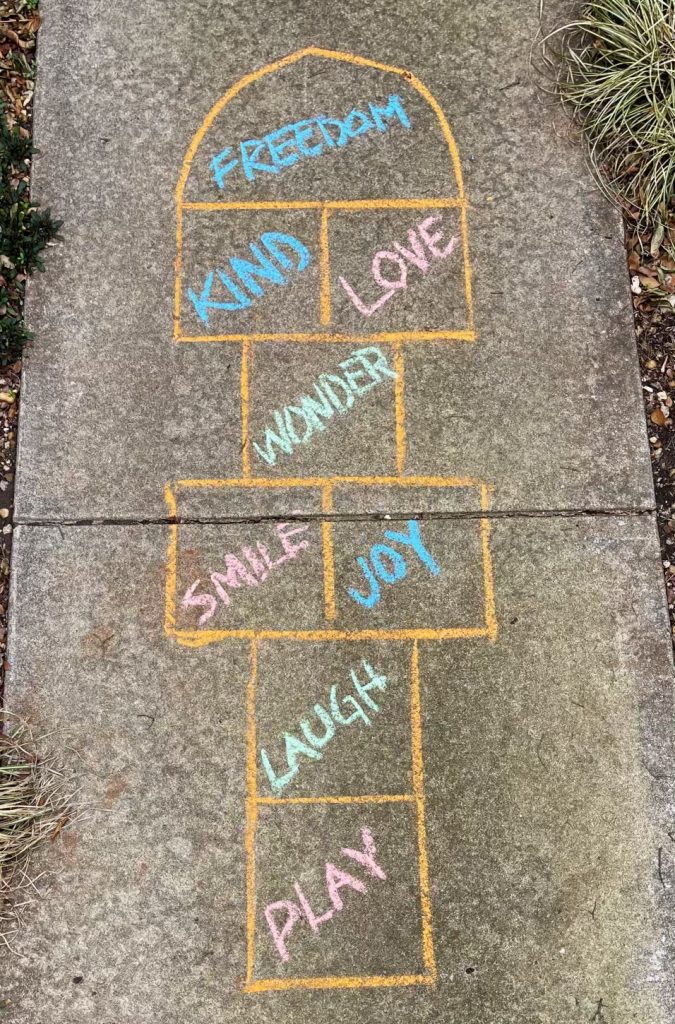 FREEDOM
KIND LOVE
WONDER
SMILE JOY
LAUGH
PLAY